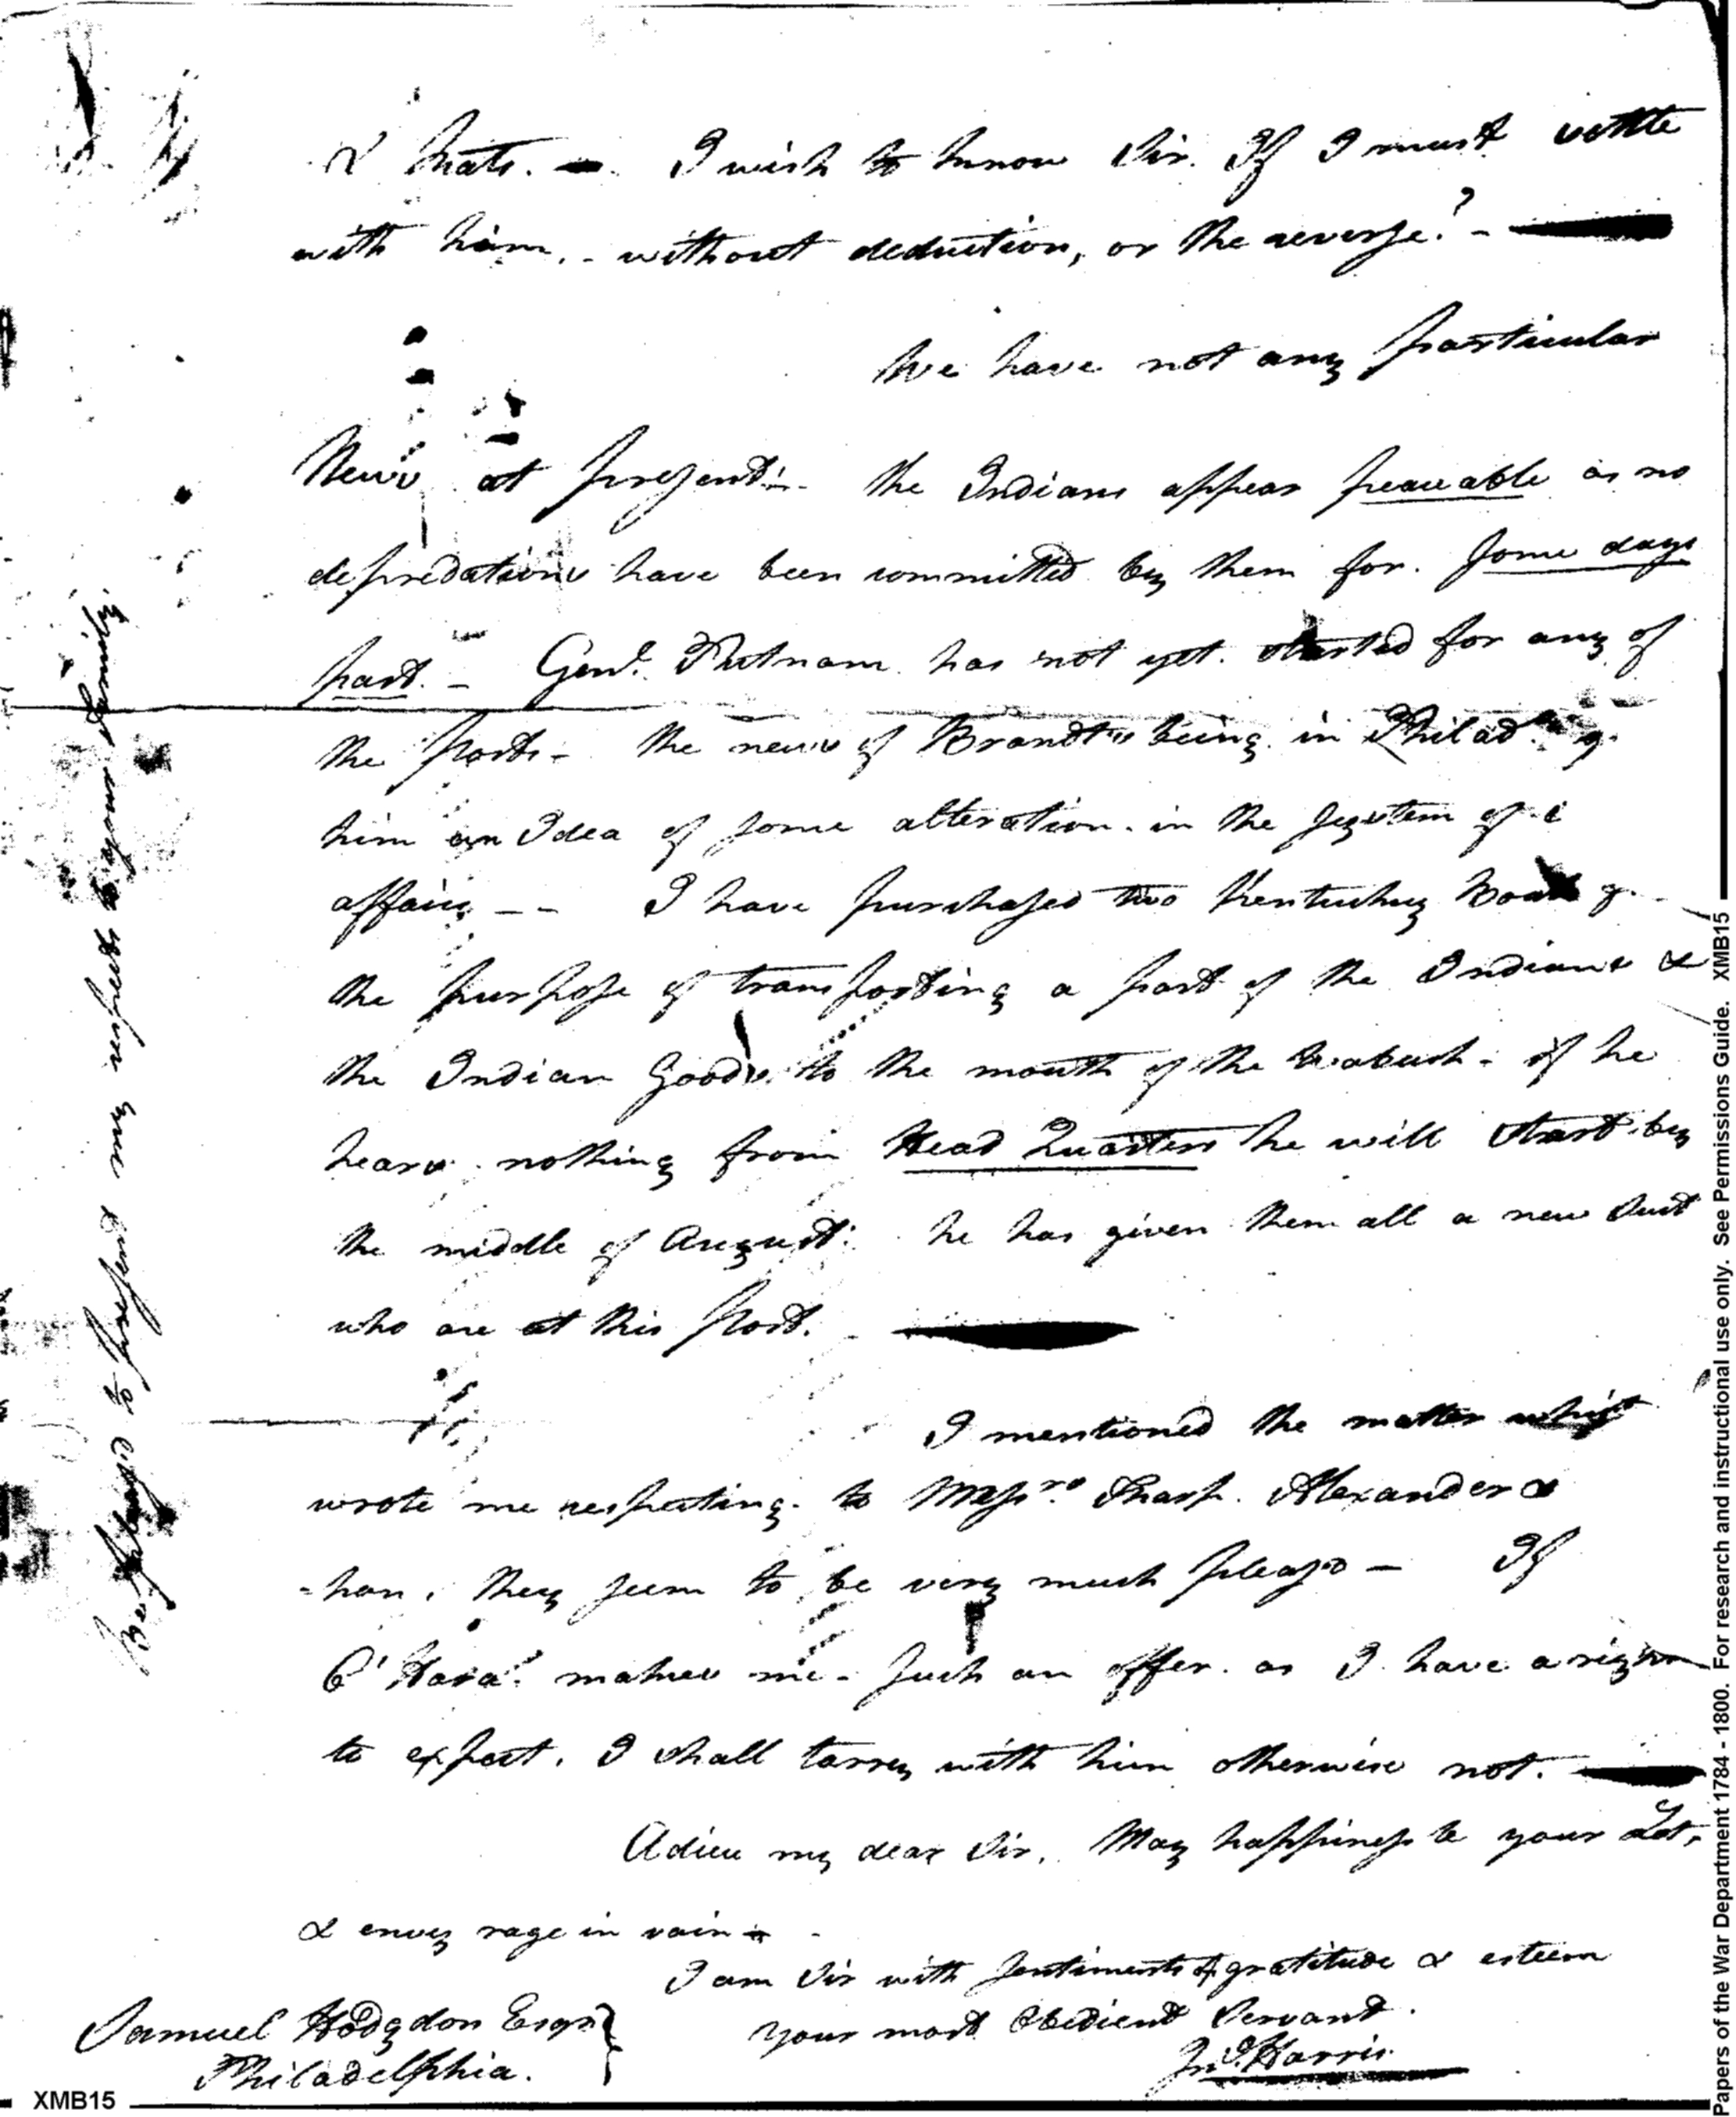 & hats. — I wish to know Sir. If I must settle
with him, - without deduction, or the reverse? -
We have not any particular
News at present:- the Indians appear peaceable as no
depredations have been committed by them for. some days
past. - Genl. Putnam has not yet. started for any of
the posts - the news of Brandt's being in Philad
him an Idea of some alteration. in the system of
affairs - - I have purchased two Kentucky Boats
the purpose of transporting a part of the Indians &
the Indian Goods, to the mouth of the Wabash - if he
hears nothing from Head Quarters he will start by
the middle of August: he has given them all a new Suit
who are at this post. -
I mentioned the matter
wrote me respecting. to Messrs. Sharp. Alexander &
-han. they seem to be very much pleas'd - If
O'Hara. makes me - such an offer. as I have a right
to expect. I shall tarry with him otherwise not.
Adieu my dear Sir, May happiness be your Lot,
& envy rage in vain -
I am Sir with sentiments of gratitude & esteem
your most Obedient Servant.
Jno. Harris
Samuel Hodgdon Esqr
Philadelphia.
Be pleas'd to present my respects to your family
XMB15
Papers of the War Department 1784 - 1800. For research and instructional use only. See Permissions Guide. XMB15